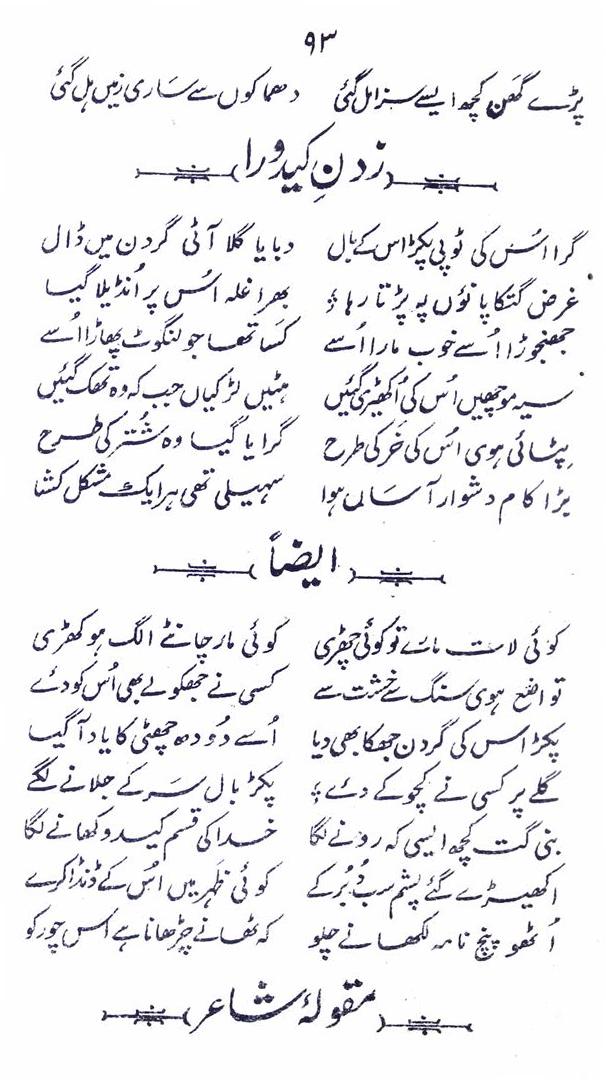 ۹۳
پڑے گھن کچھ ایسے سزا مل گئی دھماکوں سے ساری زمیں ہل گئی
زدنِ کیدو را
گرا اُس کی ٹوپی پکڑ اس کے بال دبایا گلا آنٹی گردن میں ڈال
غرض گتکا پاؤں پہ پڑتا رہا بھرا غلہ اُس پر اُنڈیلا گیا
جھنجوڑا اُسے خوب مارا اُسے کسا تھا جو لنگوٹ پھاڑا اُسے
سیہ موچھیں اُس کی اُکھیڑی گئیں ہٹیں لڑکیاں جب کہ وہ تھک گئیں
پٹائی ہوی اُس کی خر کی طرح گرایا گیا وہ شُتر کی طرح
بڑا کام دشوار آساں ہوا سہیلی تھی ہر ایک مشکل کشا
ایضاً
کوئی لات مارے تو کوئی چھڑی کوئی مار چانٹے الگ ہو کھڑی
تواضع ہوی سنگ سے خشت سے کسی نے جھکولے بھی اُس کو دئے
پکڑ اس کی گردن جھکا بھی دیا اُسے دودھ چھٹی کا یاد آ گیا
گلے پر کسی نے کچوکے دئے پکڑ بال سر کے جلانے لگے
بنی گت کچھ ایسی کہ رونے لگا خدا کی قسم کیدو کھانے لگا
اکھیڑے گئے پشم سب دُبُر کے کوئی ظہر میں اُس کے ڈنڈا کرے
اُٹھو پنچ نامہ لکھانے چلو کہ تھانے چڑھانا ہے اس چور کو
مقولۂ شاعر